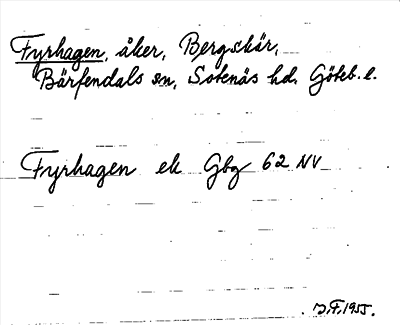 Fyrhagen, åker, Bergskär,
Bärfendals sn, Sotenäs hd, Göteb. l.
Fyrhagen ek Gbg 62 NV
J.F. 1955.